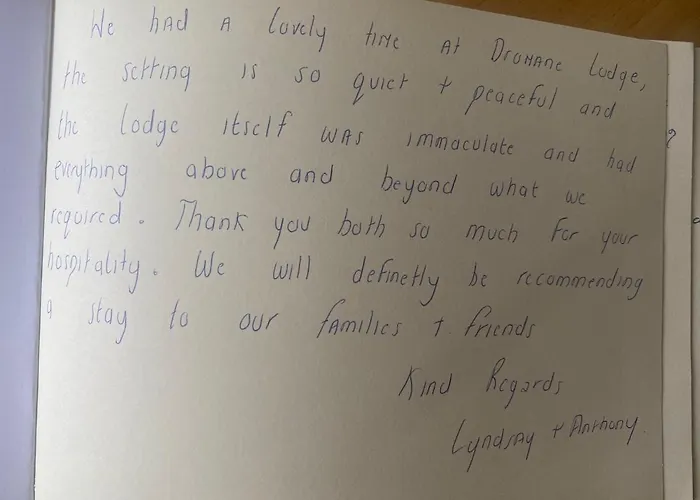 We had a lovely time at Dromane Lodge,
the setting is so quiet + peaceful and
the lodge itself was immaculate and had
everything above and beyond what we
required. Thank you both so much for your
hospitality. We will definetly be recommending
a stay to our families + friends
Kind Regards
Lyndsay + Anthony.